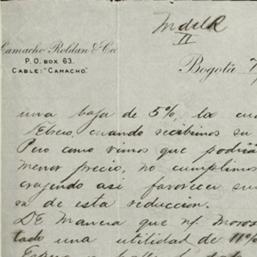 II
Camacho Roldan & Co
P.O. BOX 63.
CABLE: "CAMACHO."
Bogotá
una baja de 5%, la
cuando recibimos su
Pero como vimos que podria
menor precio, no cumplimos
creyendo asi favorecer su
sa de esta reduccion.
De Manera que
tado una utilidad de 11%